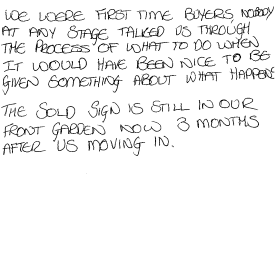 WE WERE FIRST TIME BUYERS, NOBODY
AT ANY STAGE TALKED US THROUGH
THE PROCESS OF WHAT TO DO WHEN
IT WOULD HAVE BEEN NICE TO BE
GIVEN SOMETHING ABOUT WHAT HAPPENS
THE SOLD SIGN IS STILL IN OUR
FRONT GARDEN NOW 3 MONTHS
AFTER US MOVING IN.